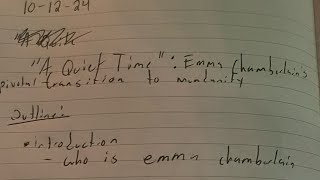 10-12-24
"A Quiet Time": Emma Chamberlain's
pivotal transition to mundanity
Outline:
• introduction
- who is emma chamberlain